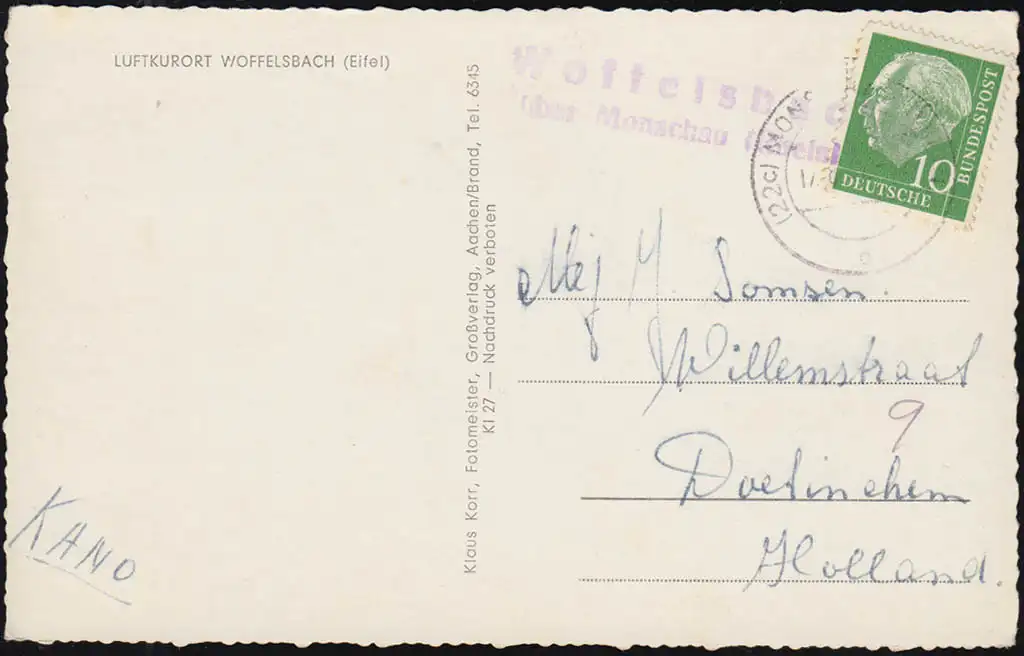 LUFTKURORT WOFFELSBACH (Eifel)
KANO
Klaus Korr, Fotomeister, Großverlag, Aachen/Brand, Tel. 6345
KI 27 — Nachdruck verboten
Woffelsbach
über Monschau
(22c) MONS
10
DEUTSCHE
BUNDESPOST
Mej Y. Somsen.
Willemstraat
9
Doetinchem
Holland.